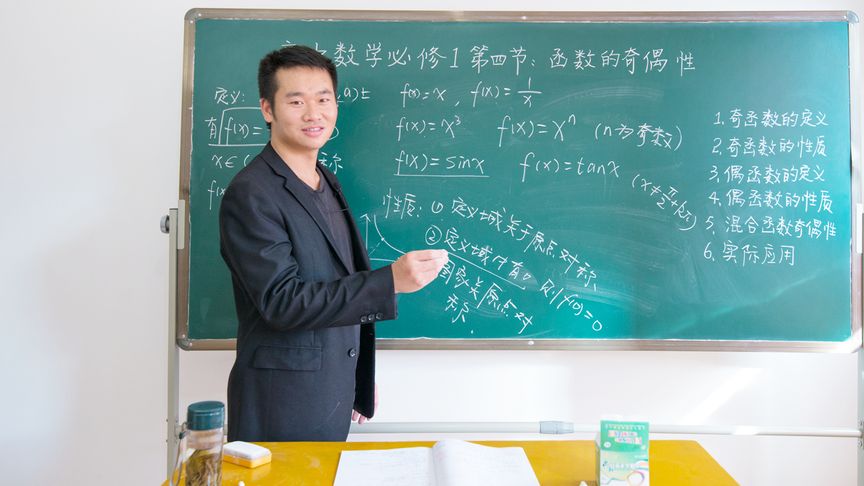 数学必修1 第四节：函数的奇偶性
定义：
a)上
有 f(x)=
x∈(
称
f(x)=x，f(x)=1/x
f(x)=x³ f(x)=xⁿ (n为奇数)
f(x)=sinx f(x)=tanx (x≠π/2+kπ)
性质：① 定义域关于原点对称
② 定义域内有0 则f(0)=0
图象关于原点对
称.
1.奇函数的定义
2.奇函数的性质
3.偶函数的定义
4.偶函数的性质
5.混合函数奇偶性
6.实际应用